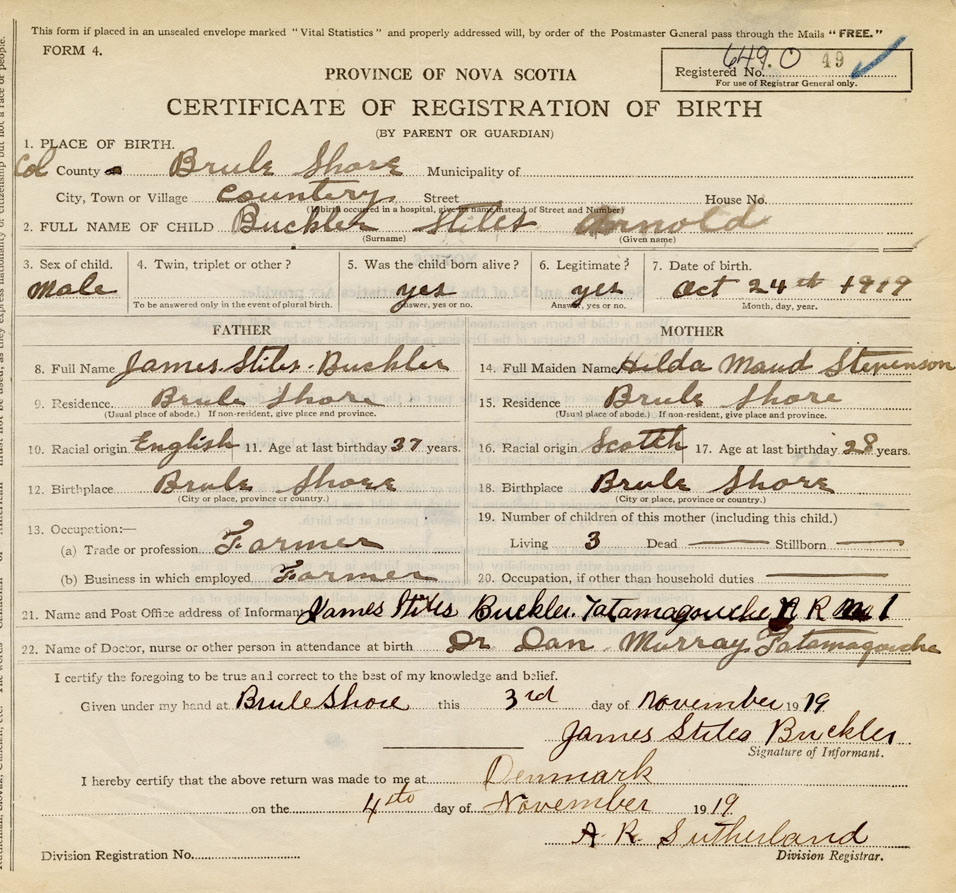 This form if placed in an unsealed envelope marked "Vital Statistics" and properly addressed will, by order of the Postmaster General pass through the Mails "FREE."
FORM 4.
649.0 49
Registered No.
For use of Registrar General only.
PROVINCE OF NOVA SCOTIA
CERTIFICATE OF REGISTRATION OF BIRTH
(BY PARENT OR GUARDIAN)
1. PLACE OF BIRTH.
Col County Brule Shore Municipality of
City, Town or Village country Street House No.
(If birth occurred in a hospital, give its name instead of Street and Number)
2. FULL NAME OF CHILD Buckler Stiles Arnold
(Surname) (Given name)
3. Sex of child. 4. Twin, triplet or other? 5. Was the child born alive? 6. Legitimate? 7. Date of birth.
Male yes yes Oct 24th 1919
To be answered only in the event of plural birth. Answer, yes or no. Answer, yes or no. Month, day, year.
FATHER MOTHER
8. Full Name James Stiles Buckler 14. Full Maiden Name Hilda Maud Stevenson
9. Residence Brule Shore 15. Residence Brule Shore
(Usual place of abode.) If non-resident, give place and province. (Usual place of abode.) If non-resident, give place and province.
10. Racial origin English 11. Age at last birthday 37 years. 16. Racial origin Scotch 17. Age at last birthday 28 years.
12. Birthplace Brule Shore 18. Birthplace Brule Shore
(City or place, province or country.) (City or place, province or country.)
13. Occupation:— 19. Number of children of this mother (including this child.)
(a) Trade or profession Farmer Living 3 Dead — Stillborn —
(b) Business in which employed Farmer 20. Occupation, if other than household duties —
21. Name and Post Office address of Informant James Stiles Buckler. Tatamagouche R R No 1
22. Name of Doctor, nurse or other person in attendance at birth Dr Dan Murray Tatamagouche
I certify the foregoing to be true and correct to the best of my knowledge and belief.
Given under my hand at Brule Shore this 3rd day of November 1919
James Stiles Buckler
Signature of Informant.
I hereby certify that the above return was made to me at Denmark
on the 4th day of November 1919
A. R. Sutherland
Division Registration No. Division Registrar.